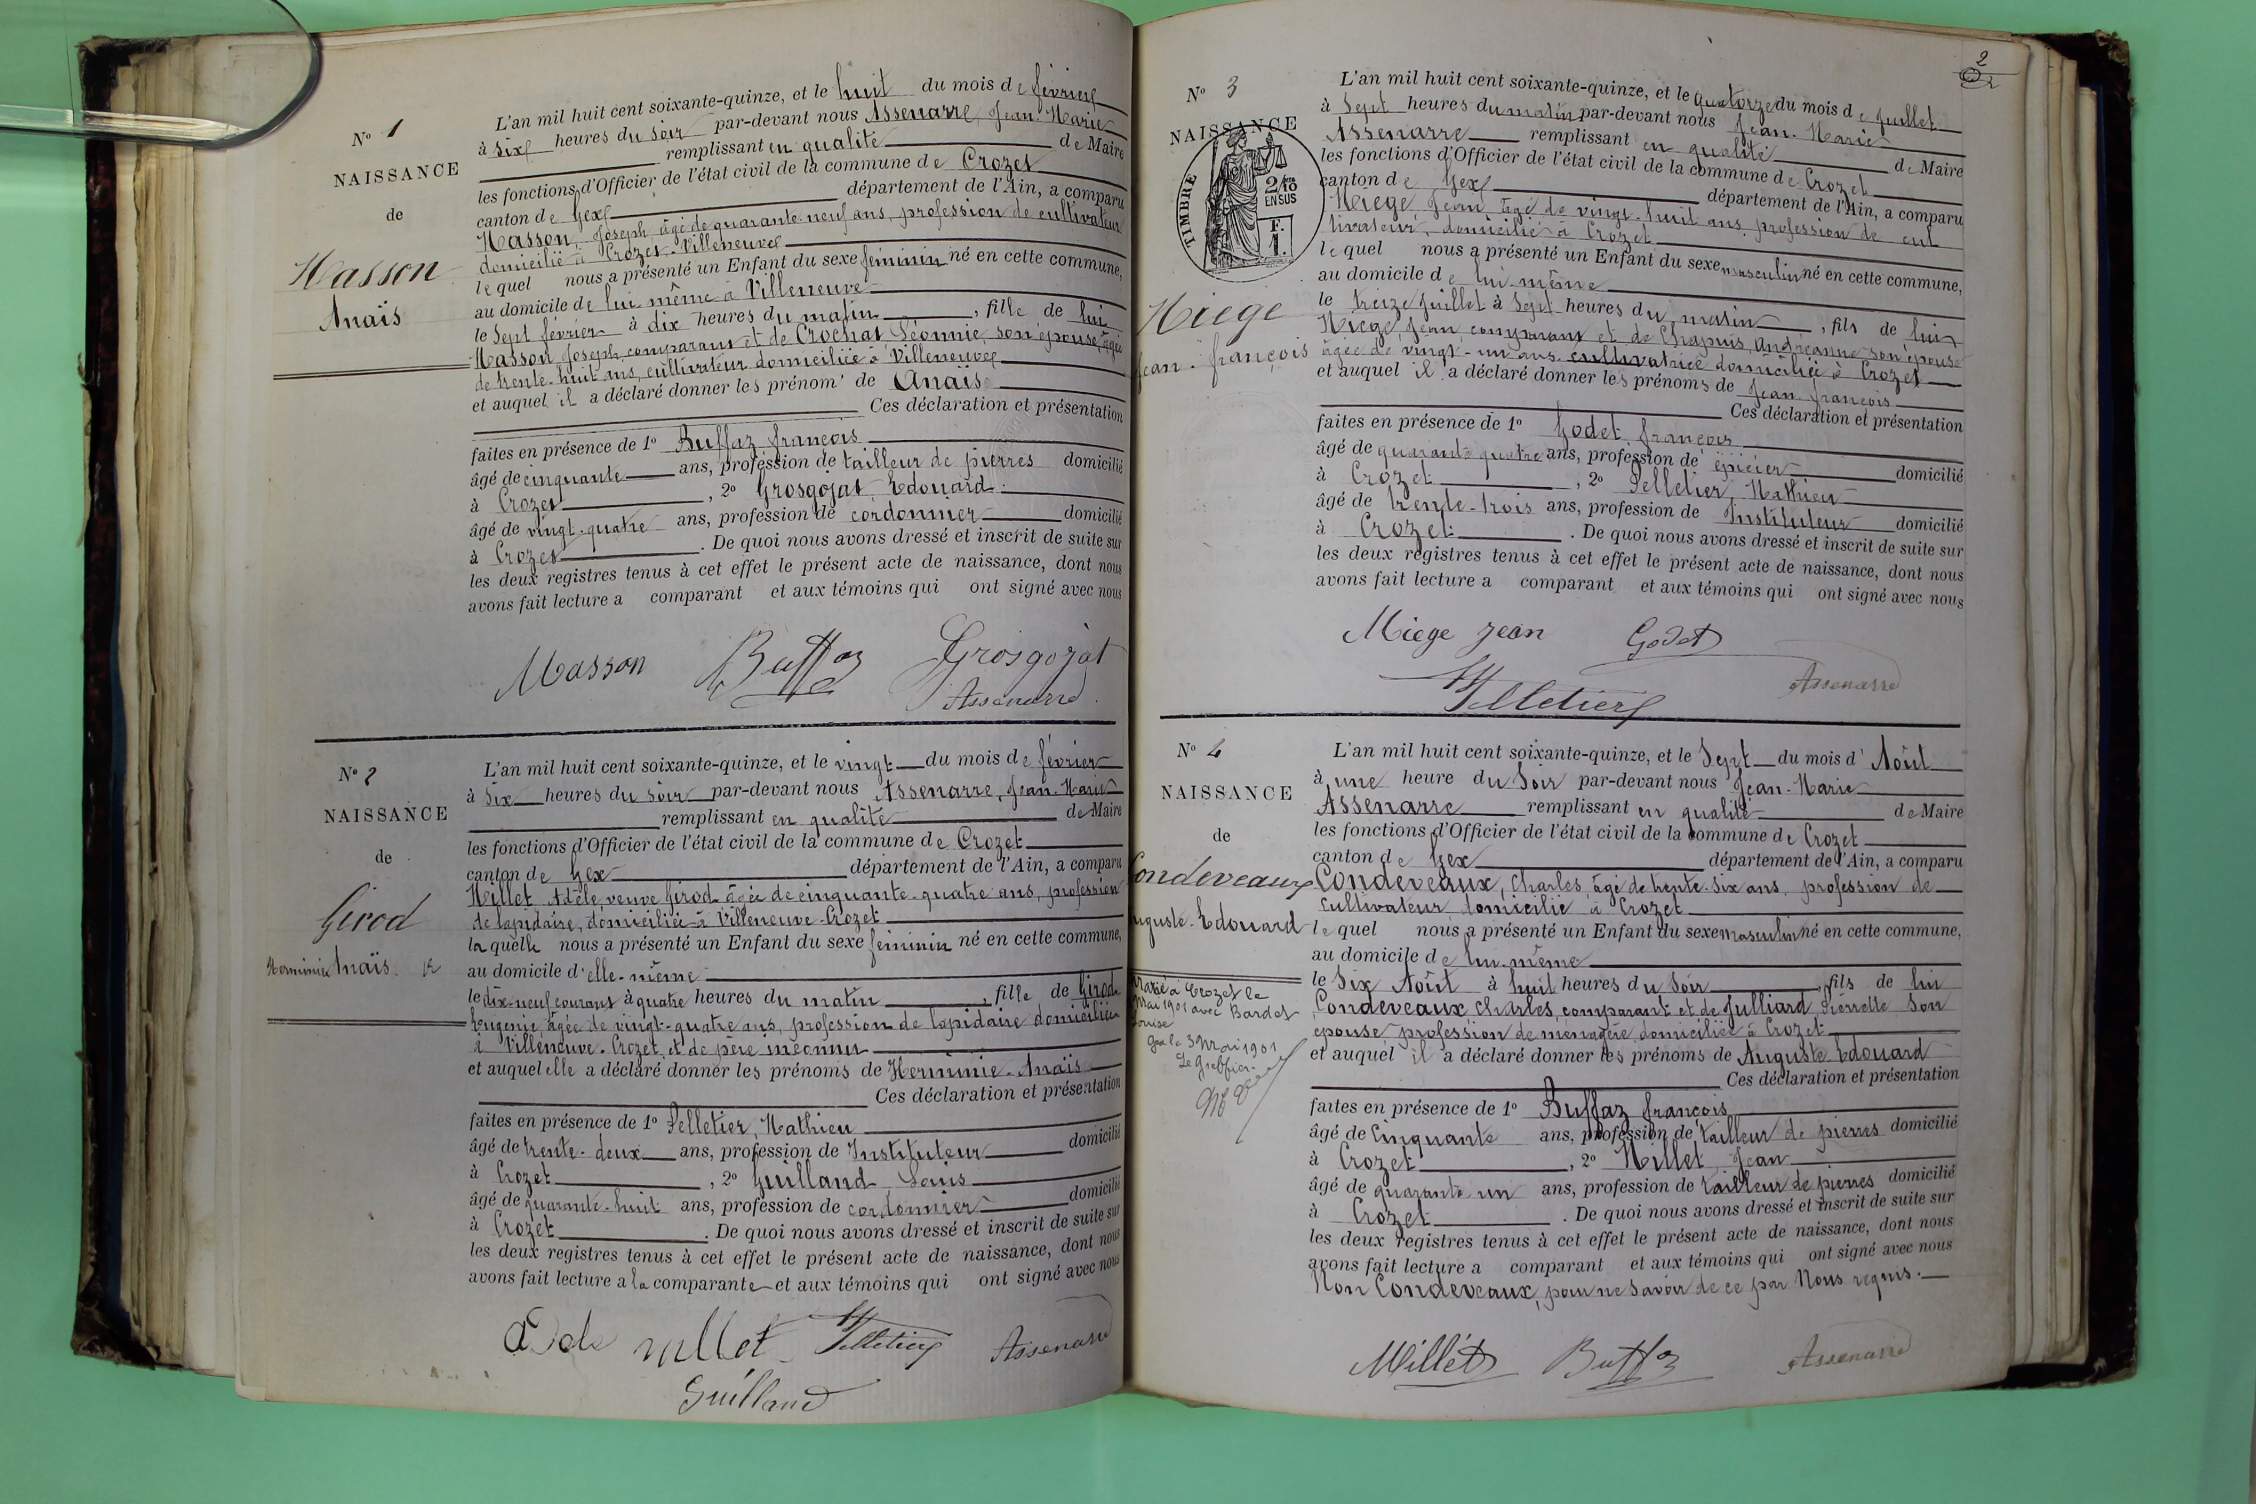 N° 1
NAISSANCE
de
Masson
Anaïs
L'an mil huit cent soixante-quinze, et le huit du mois de février
à six heures du soir par-devant nous Assenarre, Jean-Marie
remplissant en qualité de Maire
les fonctions d'Officier de l'état civil de la commune de Crozet
canton de Gex département de l'Ain, a comparu
Masson, Joseph âgé de quarante-neuf ans, profession de cultivateur
domicilié à Crozet-Villeneuve
le quel nous a présenté un Enfant du sexe féminin né en cette commune,
au domicile de lui même à Villeneuve
le sept février à dix heures du matin, fille de lui
Masson Joseph, comparant et de Crochat Léonnie, son épouse, âgée
de trente-huit ans, cultivateur domiciliée à Villeneuve
et auquel il a déclaré donner les prénom' de Anaïs
Ces déclaration et présentation
faites en présence de 1° Buffaz françois
âgé de cinquante ans, profession de tailleur de pierres domicilié
à Crozet, 2° Grosgojat Edouard
âgé de vingt-quatre ans, profession de cordonnier domicilié
à Crozet. De quoi nous avons dressé et inscrit de suite sur
les deux registres tenus à cet effet le présent acte de naissance, dont nous
avons fait lecture a comparant et aux témoins qui ont signé avec nous
Masson Buffaz Grosgojat
Assenarre
N° 2
NAISSANCE
de
Girod
Herminie Anaïs
L'an mil huit cent soixante-quinze, et le vingt du mois de février
à six heures du soir par-devant nous Assenarre, Jean-Marie
remplissant en qualité de Maire
les fonctions d'Officier de l'état civil de la commune de Crozet
canton de Gex département de l'Ain, a comparu
Millet Adèle, veuve Girod âgée de cinquante-quatre ans, profession
de lapidaire, domiciliée à Villeneuve-Crozet
la quelle nous a présenté un Enfant du sexe féminin né en cette commune,
au domicile d'elle-même
le dix-neuf courant à quatre heures du matin, fille de Girod
Eugénie, âgée de vingt-quatre ans, profession de lapidaire domiciliée
à Villeneuve-Crozet et de père inconnu
et auquel elle a déclaré donner les prénoms de Herminie-Anaïs
Ces déclaration et présentation
faites en présence de 1° Pelletier, Mathieu
âgé de trente-deux ans, profession de Instituteur domicilié
à Crozet, 2° Guilland Louis
âgé de quarante-huit ans, profession de cordonnier domicilié
à Crozet. De quoi nous avons dressé et inscrit de suite sur
les deux registres tenus à cet effet le présent acte de naissance, dont nous
avons fait lecture a la comparante et aux témoins qui ont signé avec nous
Adèle millet Pelletier Assenarre
Guilland
2
N° 3
NAISSANCE
TIMBRE
2/10
EN SUS
F.
1.
Miege
Jean-françois
L'an mil huit cent soixante-quinze, et le quatorze du mois de juillet
à sept heures du matin par-devant nous Jean-Marie
Assenarre remplissant en qualité de Maire
les fonctions d'Officier de l'état civil de la commune de Crozet
canton de Gex département de l'Ain, a comparu
Miege, Jean âgé de vingt-huit ans profession de cul
tivateur, domicilié à Crozet
le quel nous a présenté un Enfant du sexe masculin né en cette commune,
au domicile de lui-même
le treize juillet à sept heures du matin, fils de lui
Miege, Jean, comparant et de Chapuis, Andréanne son épouse
âgée de vingt-un ans, cultivatrice domiciliée à Crozet
et auquel il a déclaré donner les prénoms de Jean françois
Ces déclaration et présentation
faites en présence de 1° Godet, françois
âgé de quarante quatre ans, profession de épicier domicilié
à Crozet, 2° Pelletier, Mathieu
âgé de trente-trois ans, profession de Instituteur domicilié
à Crozet. De quoi nous avons dressé et inscrit de suite sur
les deux registres tenus à cet effet le présent acte de naissance, dont nous
avons fait lecture a comparant et aux témoins qui ont signé avec nous
Miege jean Godet
Pelletier Assenarre
N° 4
NAISSANCE
de
Condeveaux
Auguste-Edouard
Marié à Crozet le
mai 1901 avec Bardet
Louise
Gex le 3 mai 1901
Le Greffier
L'an mil huit cent soixante-quinze, et le Sept du mois d'Août
à une heure du Soir par-devant nous Jean-Marie
Assenarre remplissant en qualité de Maire
les fonctions d'Officier de l'état civil de la commune de Crozet
canton de Gex département de l'Ain, a comparu
Condeveaux, Charles, âgé de trente-six ans profession de
cultivateur domicilié à Crozet
le quel nous a présenté un Enfant du sexe masculin né en cette commune,
au domicile de lui-même
le Six Août à huit heures du soir, fils de lui
Condeveaux Charles, comparant et de Julliard Pernette son
épouse profession de ménagère, domiciliée à Crozet
et auquel il a déclaré donner les prénoms de Auguste Edouard
Ces déclaration et présentation
faites en présence de 1° Buffaz françois
âgé de cinquante ans, profession de tailleur de pierres domicilié
à Crozet, 2° Millet Jean
âgé de quarante un ans, profession de tailleur de pierres domicilié
à Crozet. De quoi nous avons dressé et inscrit de suite sur
les deux registres tenus à cet effet le présent acte de naissance, dont nous
avons fait lecture a comparant et aux témoins qui ont signé avec nous
Non Condeveaux, pour ne savoir de ce par Nous requis.
Millet Buffaz Assenarre